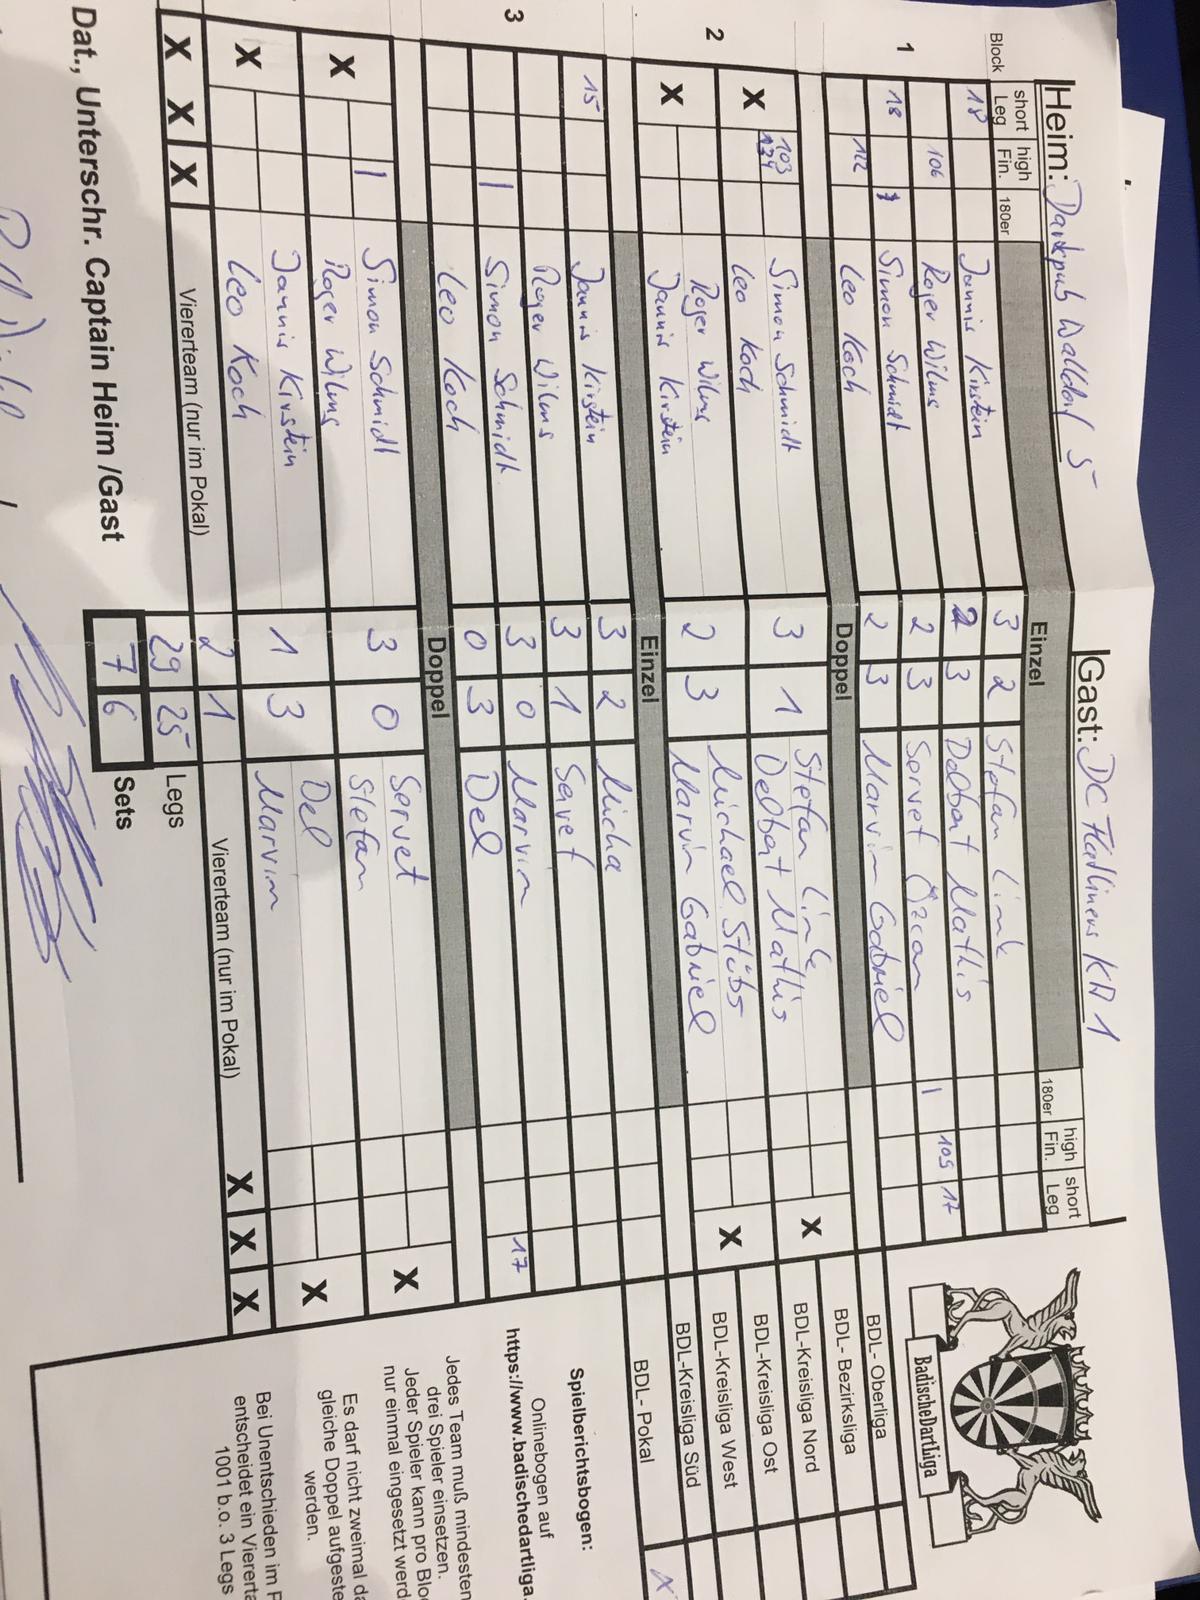 Heim: Dartpub Walldorf 5 Gast: DC Flatliners KA 1
Block short Leg high Fin. 180er Einzel 180er high Fin. short Leg
1
18 Jannis Kirstein 3 2 Stefan Link
106 Roger Wilms 2 3 Delbert Mathis 105 17
18 1 Simon Schmidt 2 3 Servet Özcan 1
112 Leo Koch 2 3 Marvin Gabriel
Doppel
2
X 103 Simon Schmidt 3 1 Stefan Link X
Leo Koch Delbert Mathis
X Roger Wilms 2 3 Michael Stübs X
Jannis Kirstein Marvin Gabriel
Einzel
3
15 Jannis Kirstein 3 2 Micha
Roger Wilms 3 1 Servet
1 Simon Schmidt 3 0 Marvin 17
Leo Koch 0 3 Del
Doppel
X 1 Simon Schmidt 3 0 Servet X
Roger Wilms Stefan
X Jannis Kirstein 1 3 Del X
Leo Koch Marvin
X X X Viererteam (nur im Pokal) 2 1 Viererteam (nur im Pokal) X X X
29 25 Legs
7 6 Sets
Dat., Unterschr. Captain Heim /Gast
BadischeDartLiga
BDL- Oberliga
BDL- Bezirksliga
BDL-Kreisliga Nord
BDL-Kreisliga Ost
BDL-Kreisliga West
BDL-Kreisliga Süd
BDL- Pokal X
Spielberichtsbogen:
Onlinebogen auf
https://www.badischedartliga.
Jedes Team muß mindesten
drei Spieler einsetzen.
Jeder Spieler kann pro Blo
nur einmal eingesetzt werd
Es darf nicht zweimal da
gleiche Doppel aufgeste
werden.
Bei Unentschieden im P
entscheidet ein Viererta
1001 b.o. 3 Legs